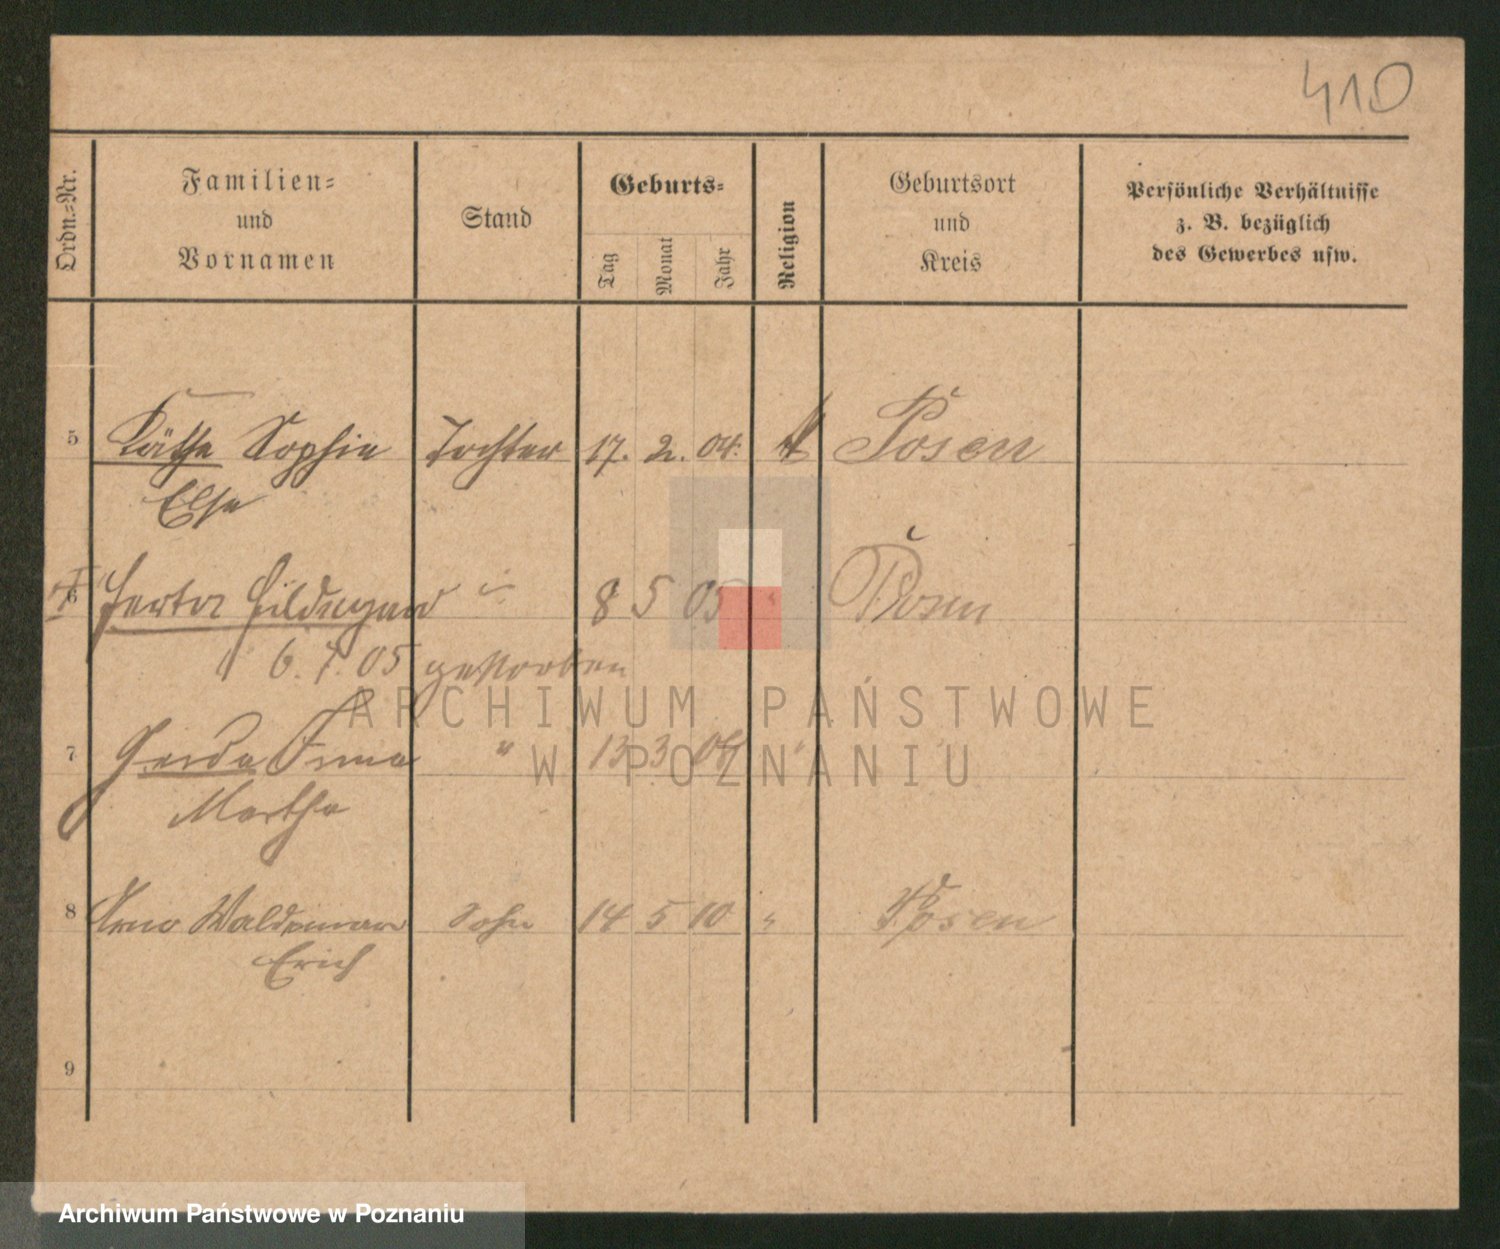 410
Ordn.-Nr.
Familien-
und
Vornamen
Stand
Geburts-
Tag
Monat
Jahr
Religion
Geburtsort
und
Kreis
Persönliche Verhältnisse
z. B. bezüglich
des Gewerbes usw.
5 Käthe Sophie Tochter 17. 2. 04. Posen
Else
6 Herta Hildegard " 8 5 05 " Posen
6. 7. 05 gestorben
7 Gerda Anna " 13 3 "
Martha
8 Arno Waldemar Sohn 14 5 10 " Posen
Erich
9
ARCHIWUM PAŃSTWOWE
W POZNANIU
Archiwum Państwowe w Poznaniu